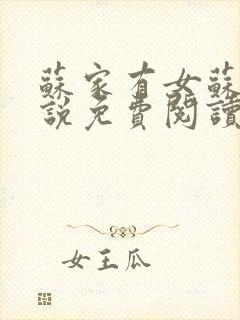 蘇家有女蘇
說免費閱讀
女王瓜